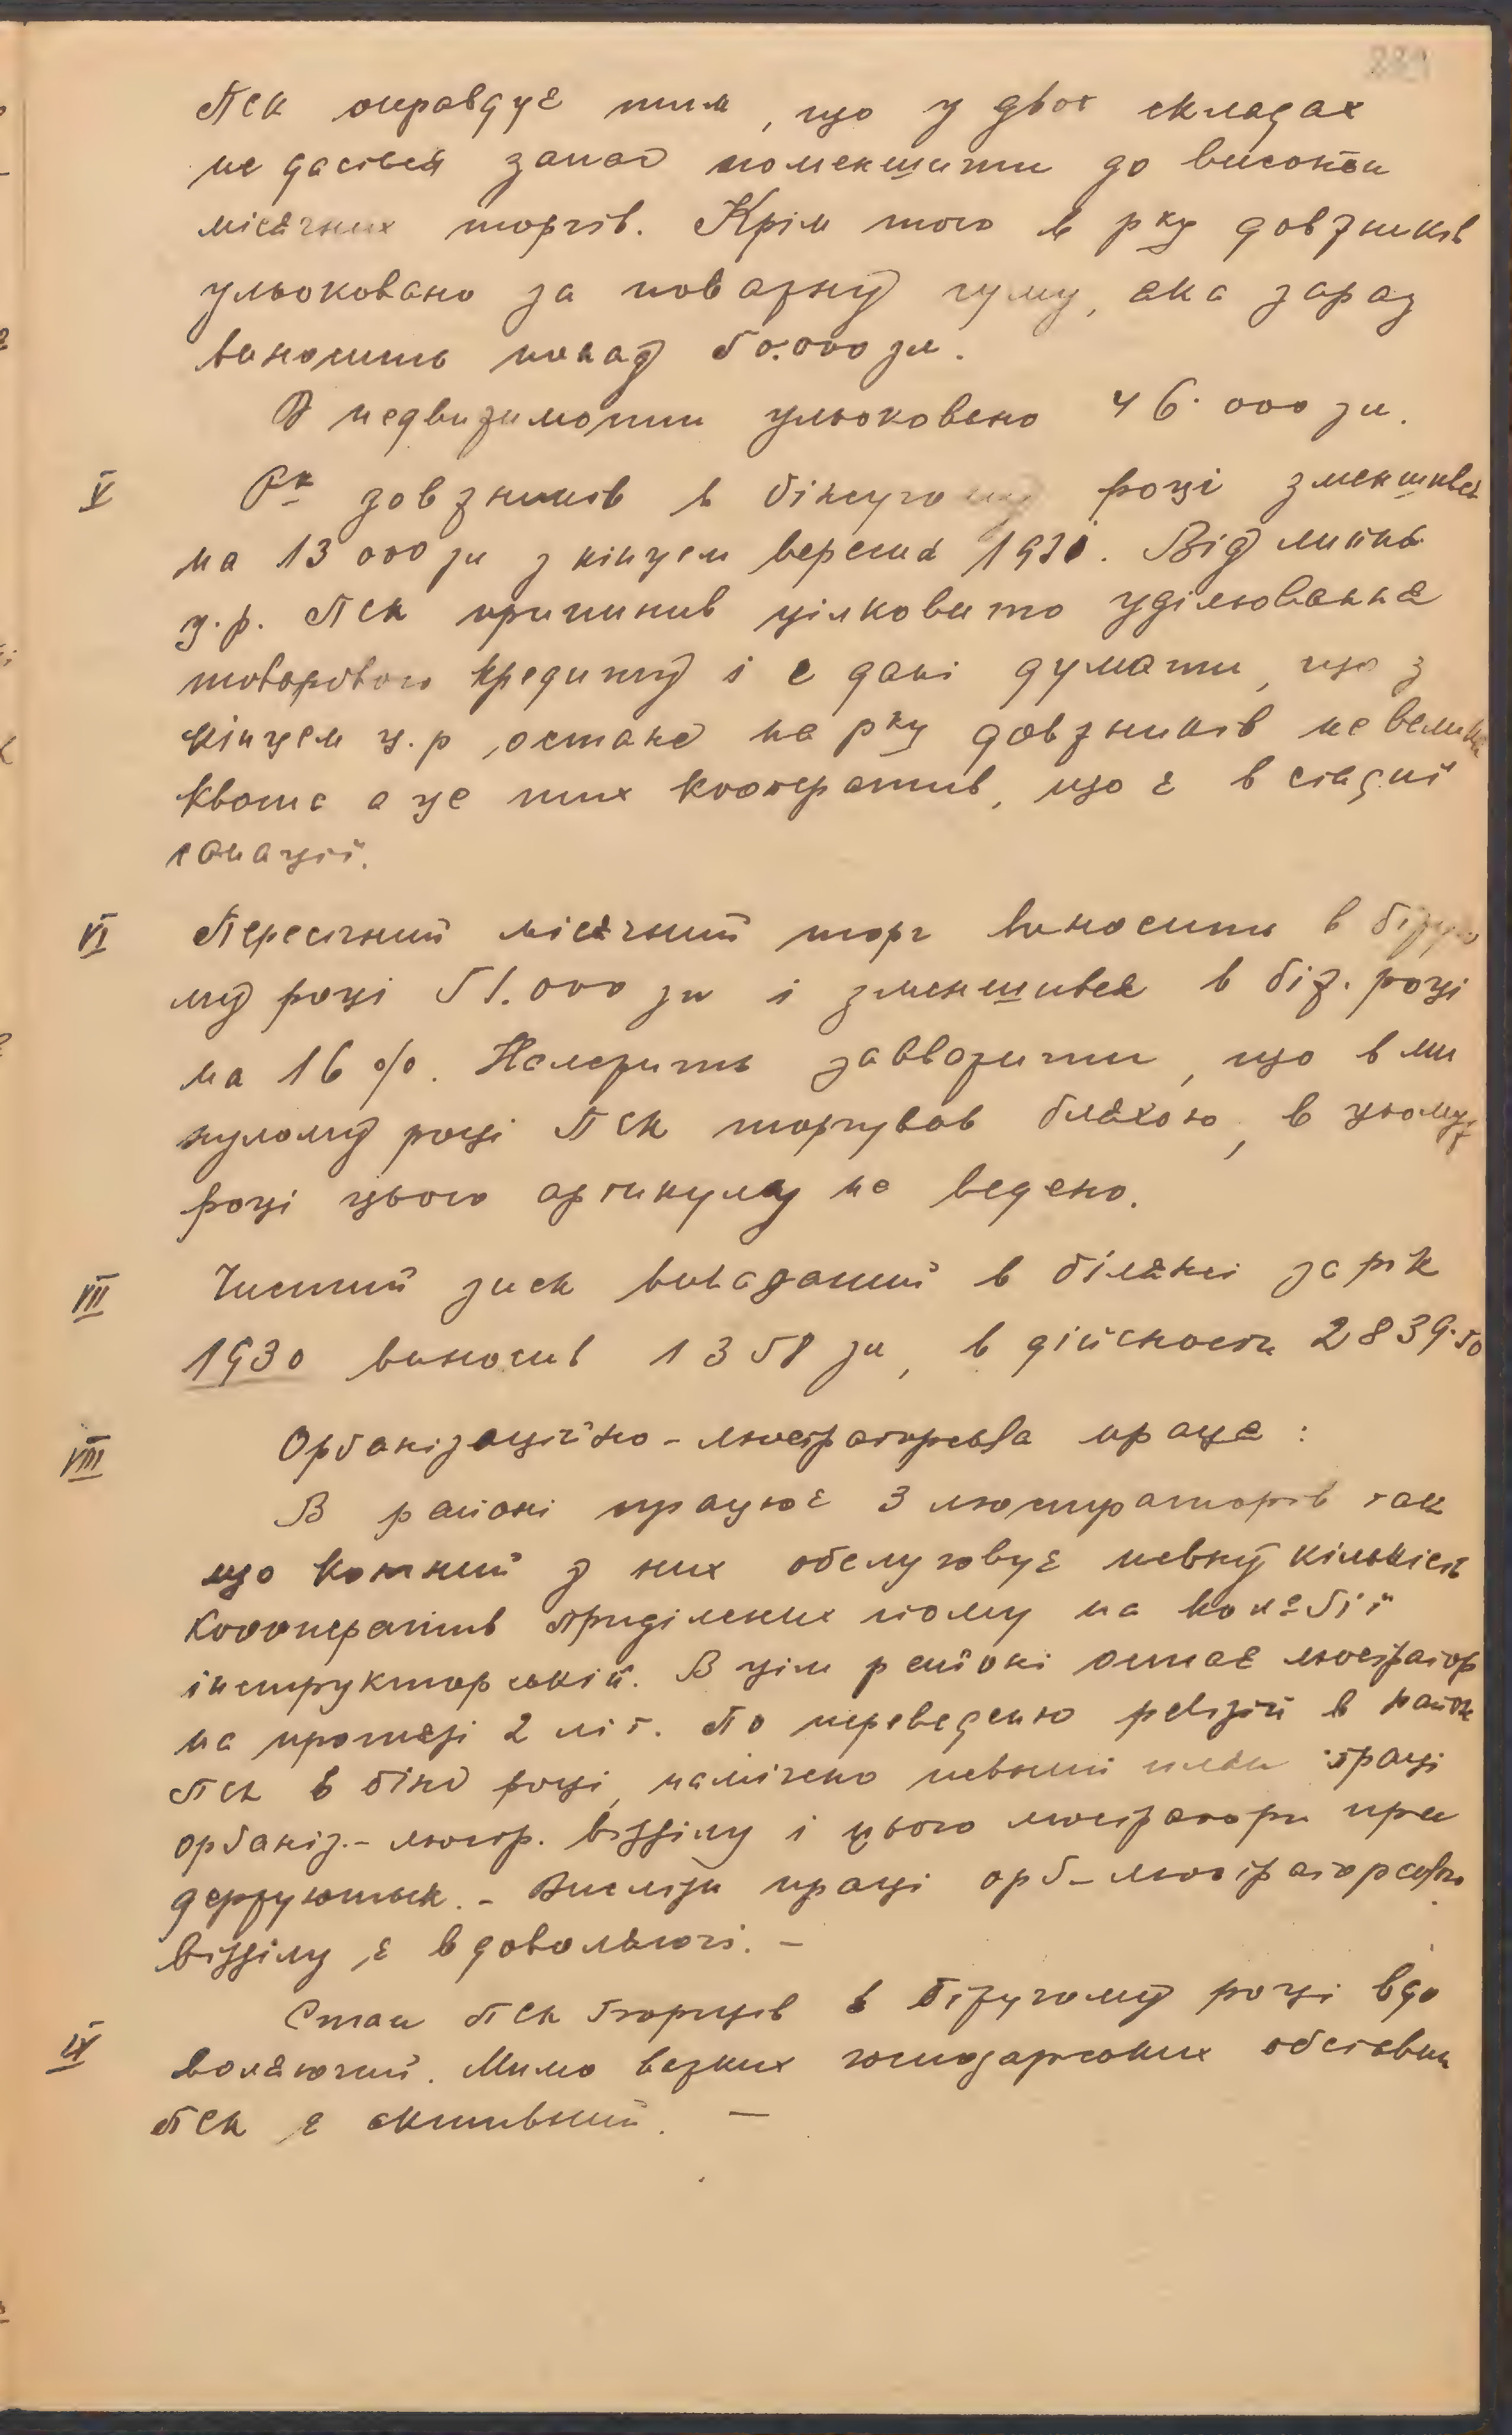 ПСК оправдує тим, що у двох складах
не дасться запас поменшити до висоти
місячних торгів. Крім того в рку довжників
ульоковано за поважну суму, яка зараз
виносить понад 50.000 зл.
В недвижимости ульоковано 46.000 зл.
V Рк довжників в біжучому році зменшився
на 13 000 зл з кінцем вересня 1931. Від липня
ц.р. ПСК припинив цілковито уділювання
товарового кредиту і є дані думати, що з
кінцем ц.р. остане на рку довжників невелика
квота а це тих кооператив, що є в стадії
санації.
VI Пересічний місячний торг виносить в біжучо
му році 51.000 зл і зменшився в біж. році
на 16 %. Належить завважити, що в ми
нулому році ПСК торгував бляхою, в цьому
році цього артикулу не ведено.
VII Чистий зиск виказаний в білянсі за рік
1930 виносив 1358 зл, в дійсности 2839.50
VIII Орґанізаційно-люстраторська праця :
В районі працює 3 люстраторів так
що кожний з них обслуговує певну кількість
кооператив приділених йому на колєґії
інструкторській. В цім районі остає люстратор
на протязі 2 літ. По переведенню ревізій в район
ПСК в біж році, намічено певний плян праці
орґаніз.- люстр. відділу і цього люстратори при
держуються. - Висліди праці орґ-люстраторського
відділу є вдоволяючі. -
IX Стан ПСК Бзорців в біжучому році вдо
воляючий. Мимо важких господарських обставин
ПСК є активний. —